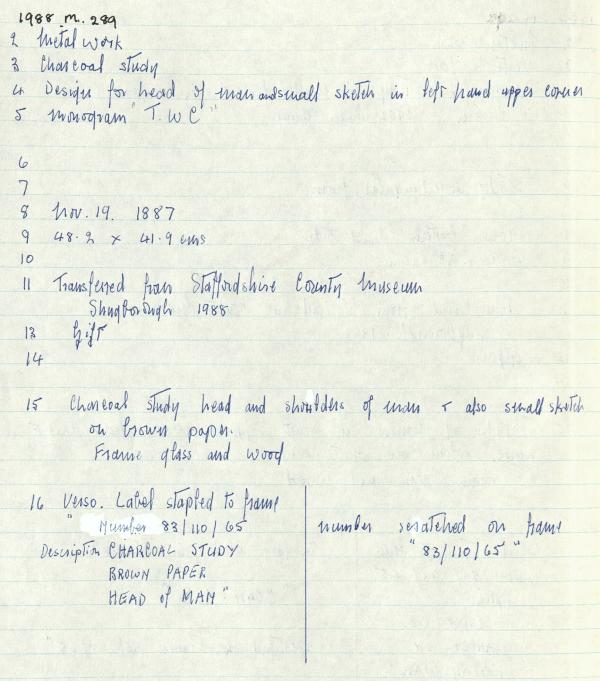 1988 m. 289
2 Metal work
3 Charcoal study
4 Design for head of man and small sketch in left hand upper corner
5 monogram "T.W C"
6
7
8 Nov. 19. 1887
9 48.2 x 41.9 cms
10
11 Transferred from Staffordshire County Museum
Shugborough 1988
13 Gift
14
15 Charcoal study head and shoulders of man + also small sketch
on brown paper.
Frame glass and wood
16 Verso. Label stapled to frame
" Number 83/110/65
Description CHARCOAL STUDY
BROWN PAPER
HEAD of MAN"
number scratched on frame
"83/110/65"